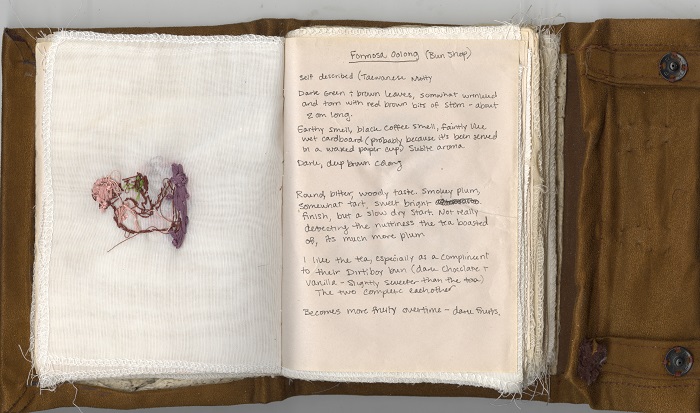 Formosa Oolong (Bun Shop)
Self described (Taiwanese Nutty
Dark Green + brown leaves, somwhat wrinkled
and torn with red brown bits of stem - about
2 cm long.
Earthy smell, black coffee smell, faintly like
wet cardboard (probably because it's been served
in a waxed paper cup) Sublte aroma
Dark, deep brown
Round, bitter, woodly taste. Smokey plum,
somewhat tart, sweet bright
finish, but a slow dry start. Not really
detecting the nuttiness the tea boasted
of, its much more plum
I like the tea, especially as a compliment
to their Dirtiboy bun (dark chocolate +
vanilla - slightly sweeter than the tea)
The two complete eachother
Becomes more fruity overtime - dark fruits.